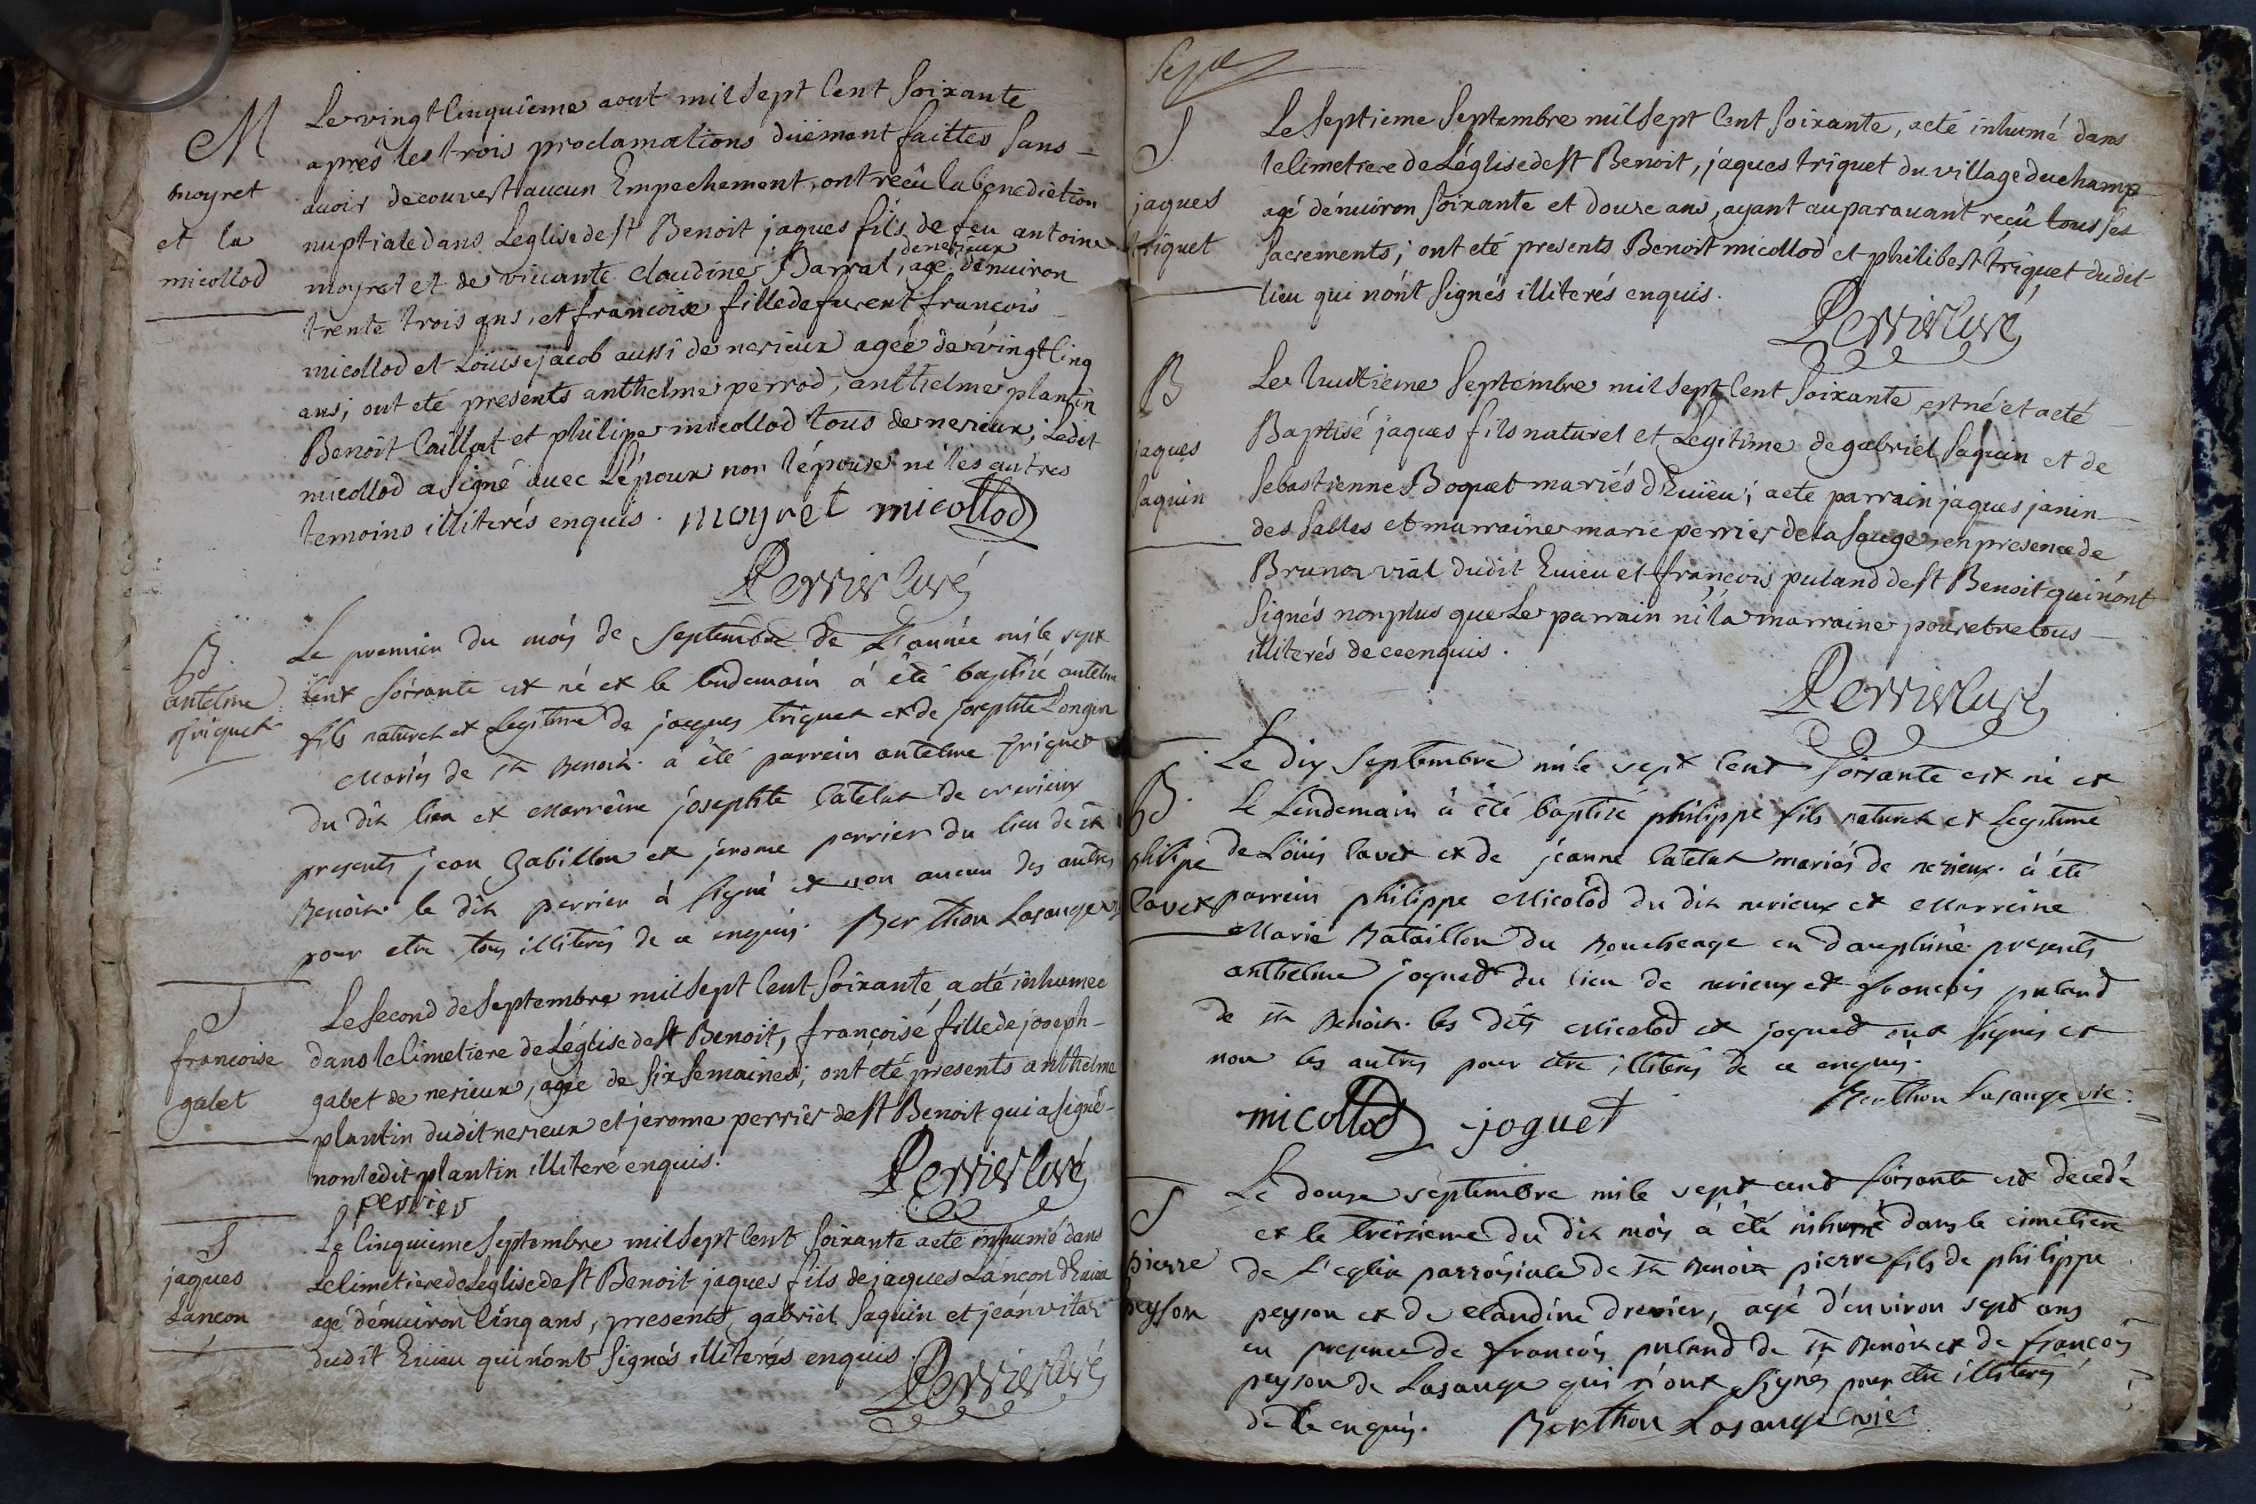 M
moyret
et la
micollod
Le vingt Cinquieme aout mil Sept Cent Soixante
aprés les trois proclamations düement faittes Sans
avoir decouvert aucun Empechement, ont reçû la benediction
nuptiale dans Leglise de st Benoit jaques fils de feu antoine
moyret et de vivante claudine Barral, de nerieux agé dénuiron
trente trois ans, et francoise fille de furent françois
micollod et Loüise jacob aussi de nerieux ageé de vingt Cinq
ans; ont eté presents anthelme perrod, anthelme plantin
Benoit Caillat et philipe micollod tous de nerieux; Ledit
micollod a Signé avec Lépoux non lépouse ni les autres
temoins illiterés enquis. moyret micollod
Perrier Curé
B.
antelme
triquet
Le premier du mois de Septembre de L'année mile sept
Cent soixante est né et le lendemain à été baptisé antelme
fils naturel et Legitime de jacques triquet et de josephte Longin
Mariés de st Benoit. a été parrain antelme triquet
du dit lieu et Marreine josephte Catelat de nerieux
presents jean Gabillon et jerome perrier du lieu de st
Benoit. le dit perrier à signé et non aucun des autres
pour etre tous illiterés de ce enquis. Berthon Lasauge vic
S
francoise
galet
Le Second de Septembre mil Sept Cent Soixante a eté inhumeé
dans le Cimetiere de Léglise de st Benoit, françoise fille de joseph
galet de nerieux, ageé de Six Semaines; ont été presents anthelme
plantin dudit nerieux et jerome perrier de st Benoit qui a signé
non ledit plantin illiteré enquis.
perrier
Perrier Curé
S
jaques
Lancon
Le Cinquieme Septembre mil Sept Cent Soixante a eté inhumé dans
Le Cimetiere de Leglise de st Benoit jaques fils de jaques Lançon dEuieu
agé dénuiron Cinq ans, presents, gabriel Saquin et jean vital
dudit Euieu qui nónt Signés illiterés enquis.
Perrier Curé
S
jaques
triquet
Le Septieme Septembre mil Sept Cent Soixante, a eté inhumé dans
le Cimetiere de Léglise de st Benoit, jaques triquet du village du champ
agé dénuiron Soixante et douze ans, ayant auparavant reçû tous ses
Sacrements; ont eté presents Benoit micollod et philibert triquet dudit
lieu qui nónt Signés illiterés enquis.
Perrier Curé
B
jaques
Saquin
Le huitieme Septembre mil Sept Cent Soixante est né et a eté
Baptisé jaques fils naturel et Legitime de gabriel Saquin et de
Sebastienne Boquet mariés dEuieu; a eté parrain jaques janin
des Salles et marraine marie perrier de la Sauge, en presence de
Bruno vial dudit Euieu et françois puland de st Benoit qui nónt
Signés non plus que Le parrain ni la marraine pour etre tous
illiterés de ce enquis.
Perrier Curé
B.
philipe
Cavet
Le dix Septembre mile sept Cent soixante est né et
Le Lendemain à été baptisé philippe fils naturel et Legitime
de Loüis Cavet et de jeanne Catelat mariés de nerieux. à été
parrein philippe Micolod du dit nerieux et Marreine
Marie Bataillon du Bouchage en dauphiné. presents
anthelme joguet du lieu de nerieux et françois puland
de st Benoit. les dits Micolod et joguet ont signés et
non les autres pour etre illiterés de ce enquis.
Berthon Lasauge vic.
micollod joguet
S
pierre
peysson
Le douze septembre mile sept cent soixante est decedé
et le treizieme du dit mois à été inhumé dans le cimetiere
de L'eglise parroissiale de st Benoit pierre fils de philippe
peyson et de claudine drevier, agé d'environ sept ans
en presence de françois puland de st Benoit et de françois
peyson de Lasauge qui n'ont signés pour etre illiterés
de ce enquis. Berthon Lasauge vic